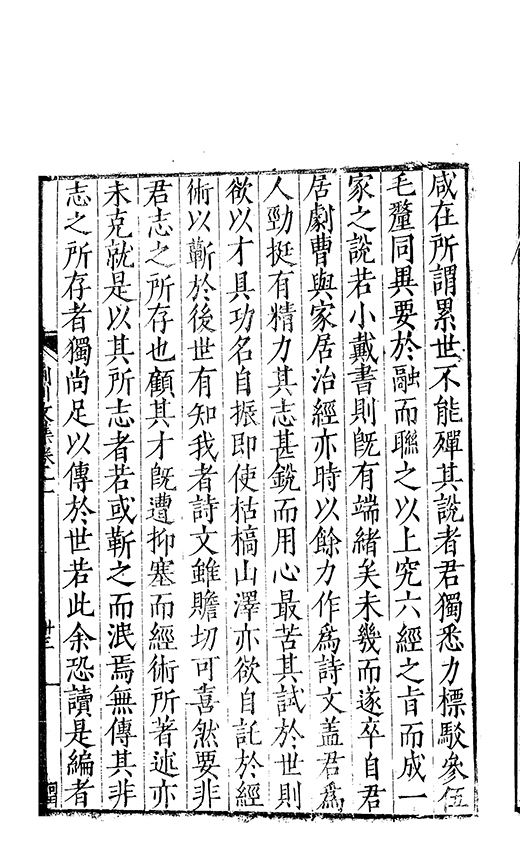 咸在所謂累世不能殫其說者君獨悉力標駁參伍
毛釐同異要於融而聯之以上究六經之旨而成一
家之說若小戴書則旣有端緒矣未幾而遂卒自君
居劇曹與家居治經亦時以餘力作爲詩文蓋君爲
人勁挺有精力其志甚銳而用心最苦其試於世則
欲以才具功名自振卽使枯槁山澤亦欲自託於經
術以蘄於後世有知我者詩文雖贍切可喜然要非
君志之所存也顧其才旣遭抑塞而經術所著述亦
未克就是以其所志者若或蘄之而泯焉無傳其非
志之所存者獨尚足以傳於世若此余恐讀是編者
川文集卷十
廿三